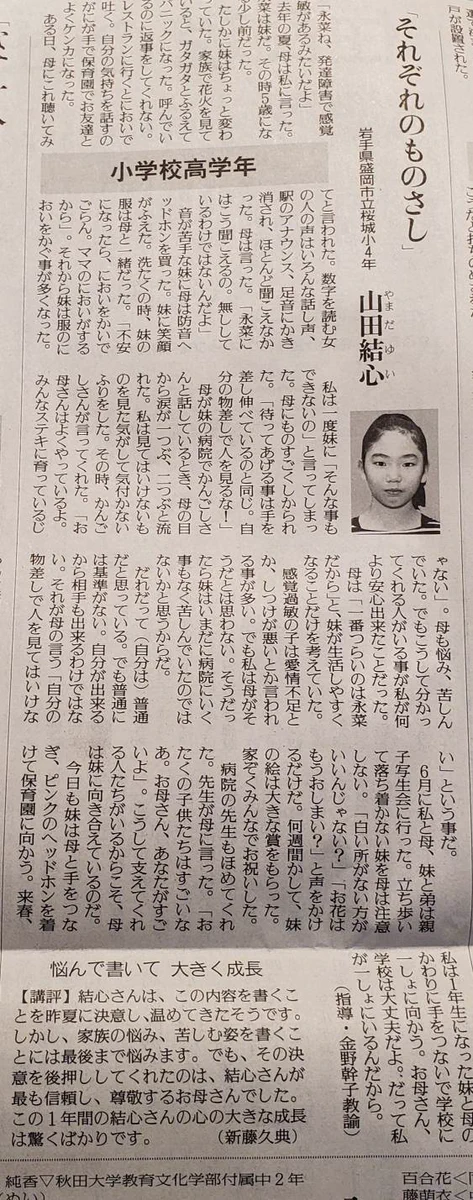 戸が設置された。
「それぞれのものさし」
岩手県盛岡市立桜城小4年
山田結心
やまだゆい
「永菜ね、発達障害で感覚
敏があるみたいだよ」
去年の夏、母は私に言った。
菜は妹だ。その時5歳にな
少し前だった。
たしかに妹はちょっと変わ
っていた。家族で花火を見て
いると、ガタガタとふるえて
パニックになった。呼んでい
るのに返事をしてくれない。
レストランに行くとにおいで
吐く。自分の気持ちを話すの
がにが手で保育園でお友達と
よくケンカになった。
ある日、母にこれ聴いてみ
小学校高学年
てと言われた。数字を読む女
の人の声はいろんな話し声、
駅のアナウンス、足音にかき
消され、ほとんど聞こえなか
った。母は言った。「永菜に
はこう聞こえるの。無視して
いるわけではないんだよ」
音が苦手な妹に母は防音ヘ
ッドホンを買った。妹に笑顔
がふえた。洗たくの時、妹の
服は母と一緒だった。「不安
になったら、においをかいで
ごらん。ママのにおいがする
から」。それから妹は服のに
おいをかぐ事が多くなった。
私は一度妹に「そんな事も
できないの」と言ってしまっ
た。母にものすごくしかられ
た。「待ってあげる事は手を
差し伸べているのと同じ。自
分の物差しで人を見るな！」
母が妹の病院でかんごしさ
んと話しているとき、母の目
から涙が一つぶ、二つぶと流
れた。私は見てはいけないも
のを見た気がして気付かない
ふりをした。その時、かんご
しさんが言ってくれた。「お
母さんはよくやっているよ。
みんなステキに育っているじ
ゃない」。母も悩み、苦しん
でいた。でもこうして分かっ
てくれる人がいる事が私が何
より安心出来たことだった。
母は「一番つらいのは永菜
だから」と、妹が生活しやすく
なることだけを考えていた。
感覚過敏の子は愛情不足と
か、しつけが悪いとか言われ
る事が多い。でも私は母がそ
うだとは思わない。そうだっ
たら妹はいまだに病院にいく
事もなく苦しんでいたのでは
ないかと思うからだ。
だれだって（自分は）普通
だと思っている。でも普通に
は基準がない。自分が出来る
から相手も出来るわけではな
い。それが母の言う「自分の
物差しで人を見てはいけな
い」という事だ。
6月に私と母、妹と弟は親
子写生会に行った。立ち歩い
て落ち着かない妹を母は注意
しない。「白い所がない方が
いいんじゃない？」「お花は
もうおしまい？」と声をかけ
るだけだ。何週間かして、妹
の絵は大きな賞をもらった。
家ぞくみんなでお祝いした。
病院の先生もほめてくれ
た。先生が母に言った。「お
たくの子供たちはすごいな
あ。お母さん、あなたがすご
いよ」。こうして支えてくれ
る人たちがいるからこそ、母
は妹に向き合えているのだ。
今日も妹は母と手をつな
ぎ、ピンクのヘッドホンを着
けて保育園に向かう。来春、
私は1年生になった妹と母の
かわりに手をつないで学校に
一しょに向かう。お母さん、
学校は大丈夫だよ。だって私
が一しょにいるんだから。
（指導・金野幹子教諭）
悩んで書いて 大きく成長
【講評】結心さんは、この内容を書くこ
とを昨夏に決意し、温めてきたそうです。
しかし、家族の悩み、苦しむ姿を書くこ
とには最後まで悩みます。でも、その決
意を後押ししてくれたのは、結心さんが
最も信頼し、尊敬するお母さんでした。
この1年間の結心さんの心の大きな成長
は驚くばかりです。　（新藤久典）
純香▽秋田大学教育文化学部付属中2年
百合花＜
藤萌衣＜